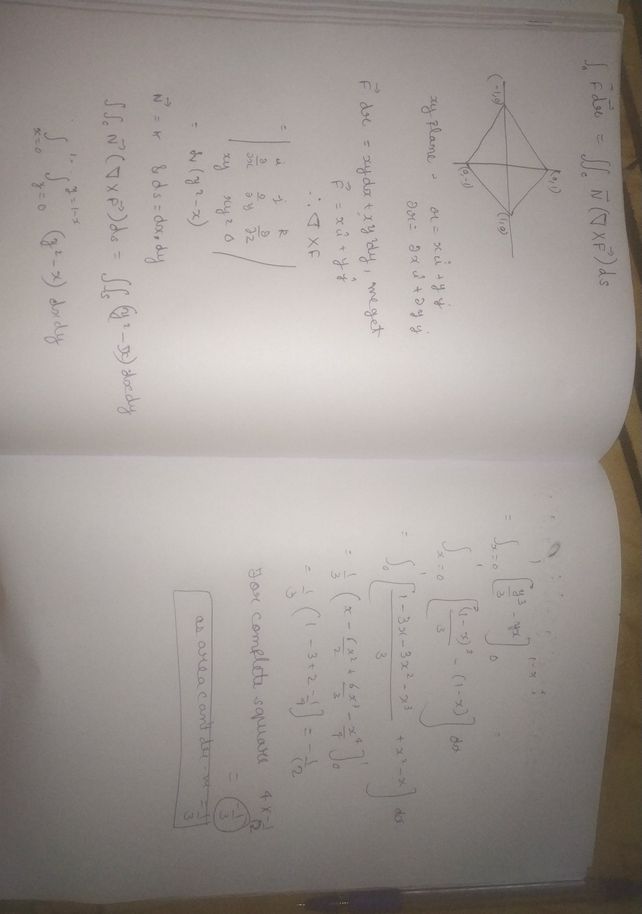 ∫c F⃗ dr = ∬c N⃗ (∇×F⃗) ds
(0,1)
(-1,0)
(1,0)
(0,-1)
xy plane - r = xî + yĵ
dr = ∂xî + ∂yĵ
F⃗ dr = xydx + xy²dy, we get
F⃗ = xî + yĵ
∴ ∇×F
= | i j k
∂/∂x ∂/∂y ∂/∂z
xy xy² 0 |
= k (y² - x)
N⃗ = k & ds = dx, dy
∬c N⃗ (∇×F⃗) ds = ∬s (y² - x) dxdy
∫x=0 ∫y=0 y=1-x (y² - x) dxdy
= ∫x=0 1 [y³/3 - yx] 0 1-x
∫x=0 1 [(1-x)³/3 - (1-x)] dx
= ∫0 1 [1 - 3x - 3x² - x³/3 + x² - x] dx
= 1/3 (x - 6x²/2 + 6x³/3 - x⁴/4] 0 1
= 1/3 (1 - 3 + 2 - 1/4] = -1/12
For complete square 4 × -1/12
= -1/3
as area can't be -ve = 1/3